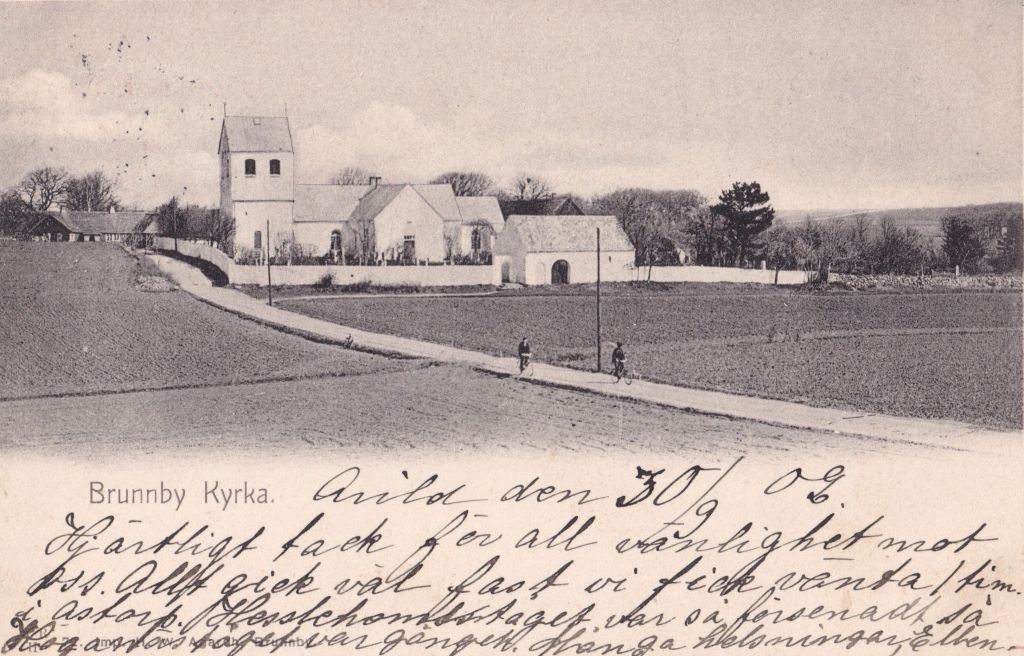 Brunnby Kyrka. Arild den 30/9 02.
Hjärtligt tack för all vänlighet mot
oss. Allt gick väl fast vi fick vänta 1 tim.
i Åstorp. Hessleholmståget var så försenadt så
var gånget. Många helsningar,